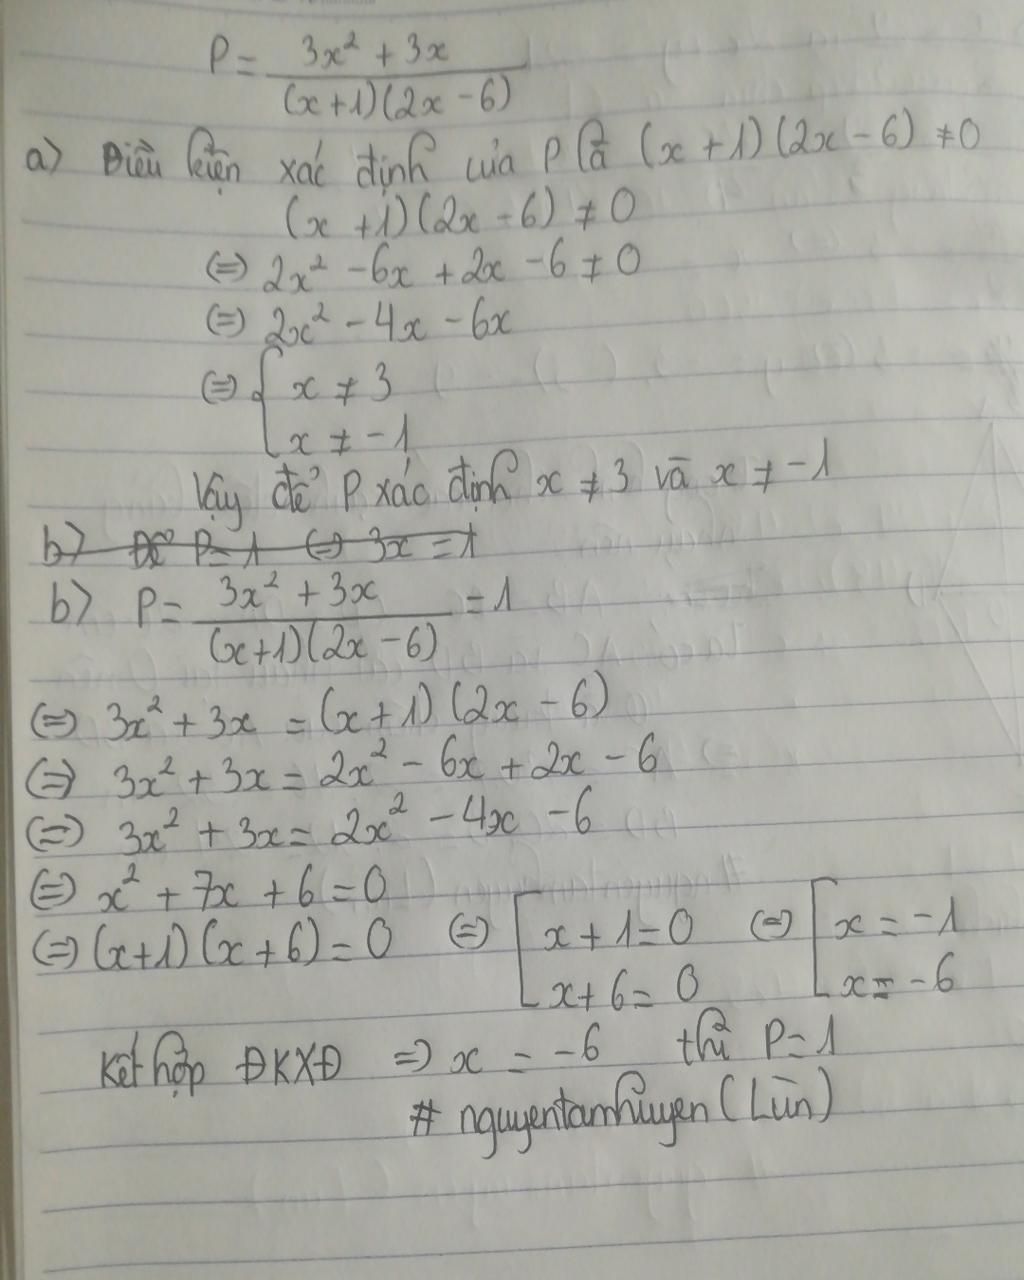 P = \frac{3x² + 3x}{(x+1)(2x-6)}
a) Điều kiện xác định của P là (x+1)(2x-6) ≠ 0
(x+1)(2x-6) ≠ 0
(=) 2x² - 6x + 2x - 6 ≠ 0
(=) 2x² - 4x - 6x
(=) { x ≠ 3
x ≠ -1
Vậy để P xác định x ≠ 3 và x ≠ -1
b) Để P = 1 (=) 3x = 1
b) P = \frac{3x² + 3x}{(x+1)(2x-6)} = 1
(=) 3x² + 3x = (x+1)(2x-6)
(=) 3x² + 3x = 2x² - 6x + 2x - 6
(=) 3x² + 3x = 2x² - 4x - 6
(=) x² + 7x + 6 = 0
(=) (x+1)(x+6) = 0 (=) [ x+1=0 (=) [ x = -1
x+6 = 0 x = -6
Kết hợp ĐKXĐ => x = -6 thì P = 1
# nguyentamhuyen (Lùn)